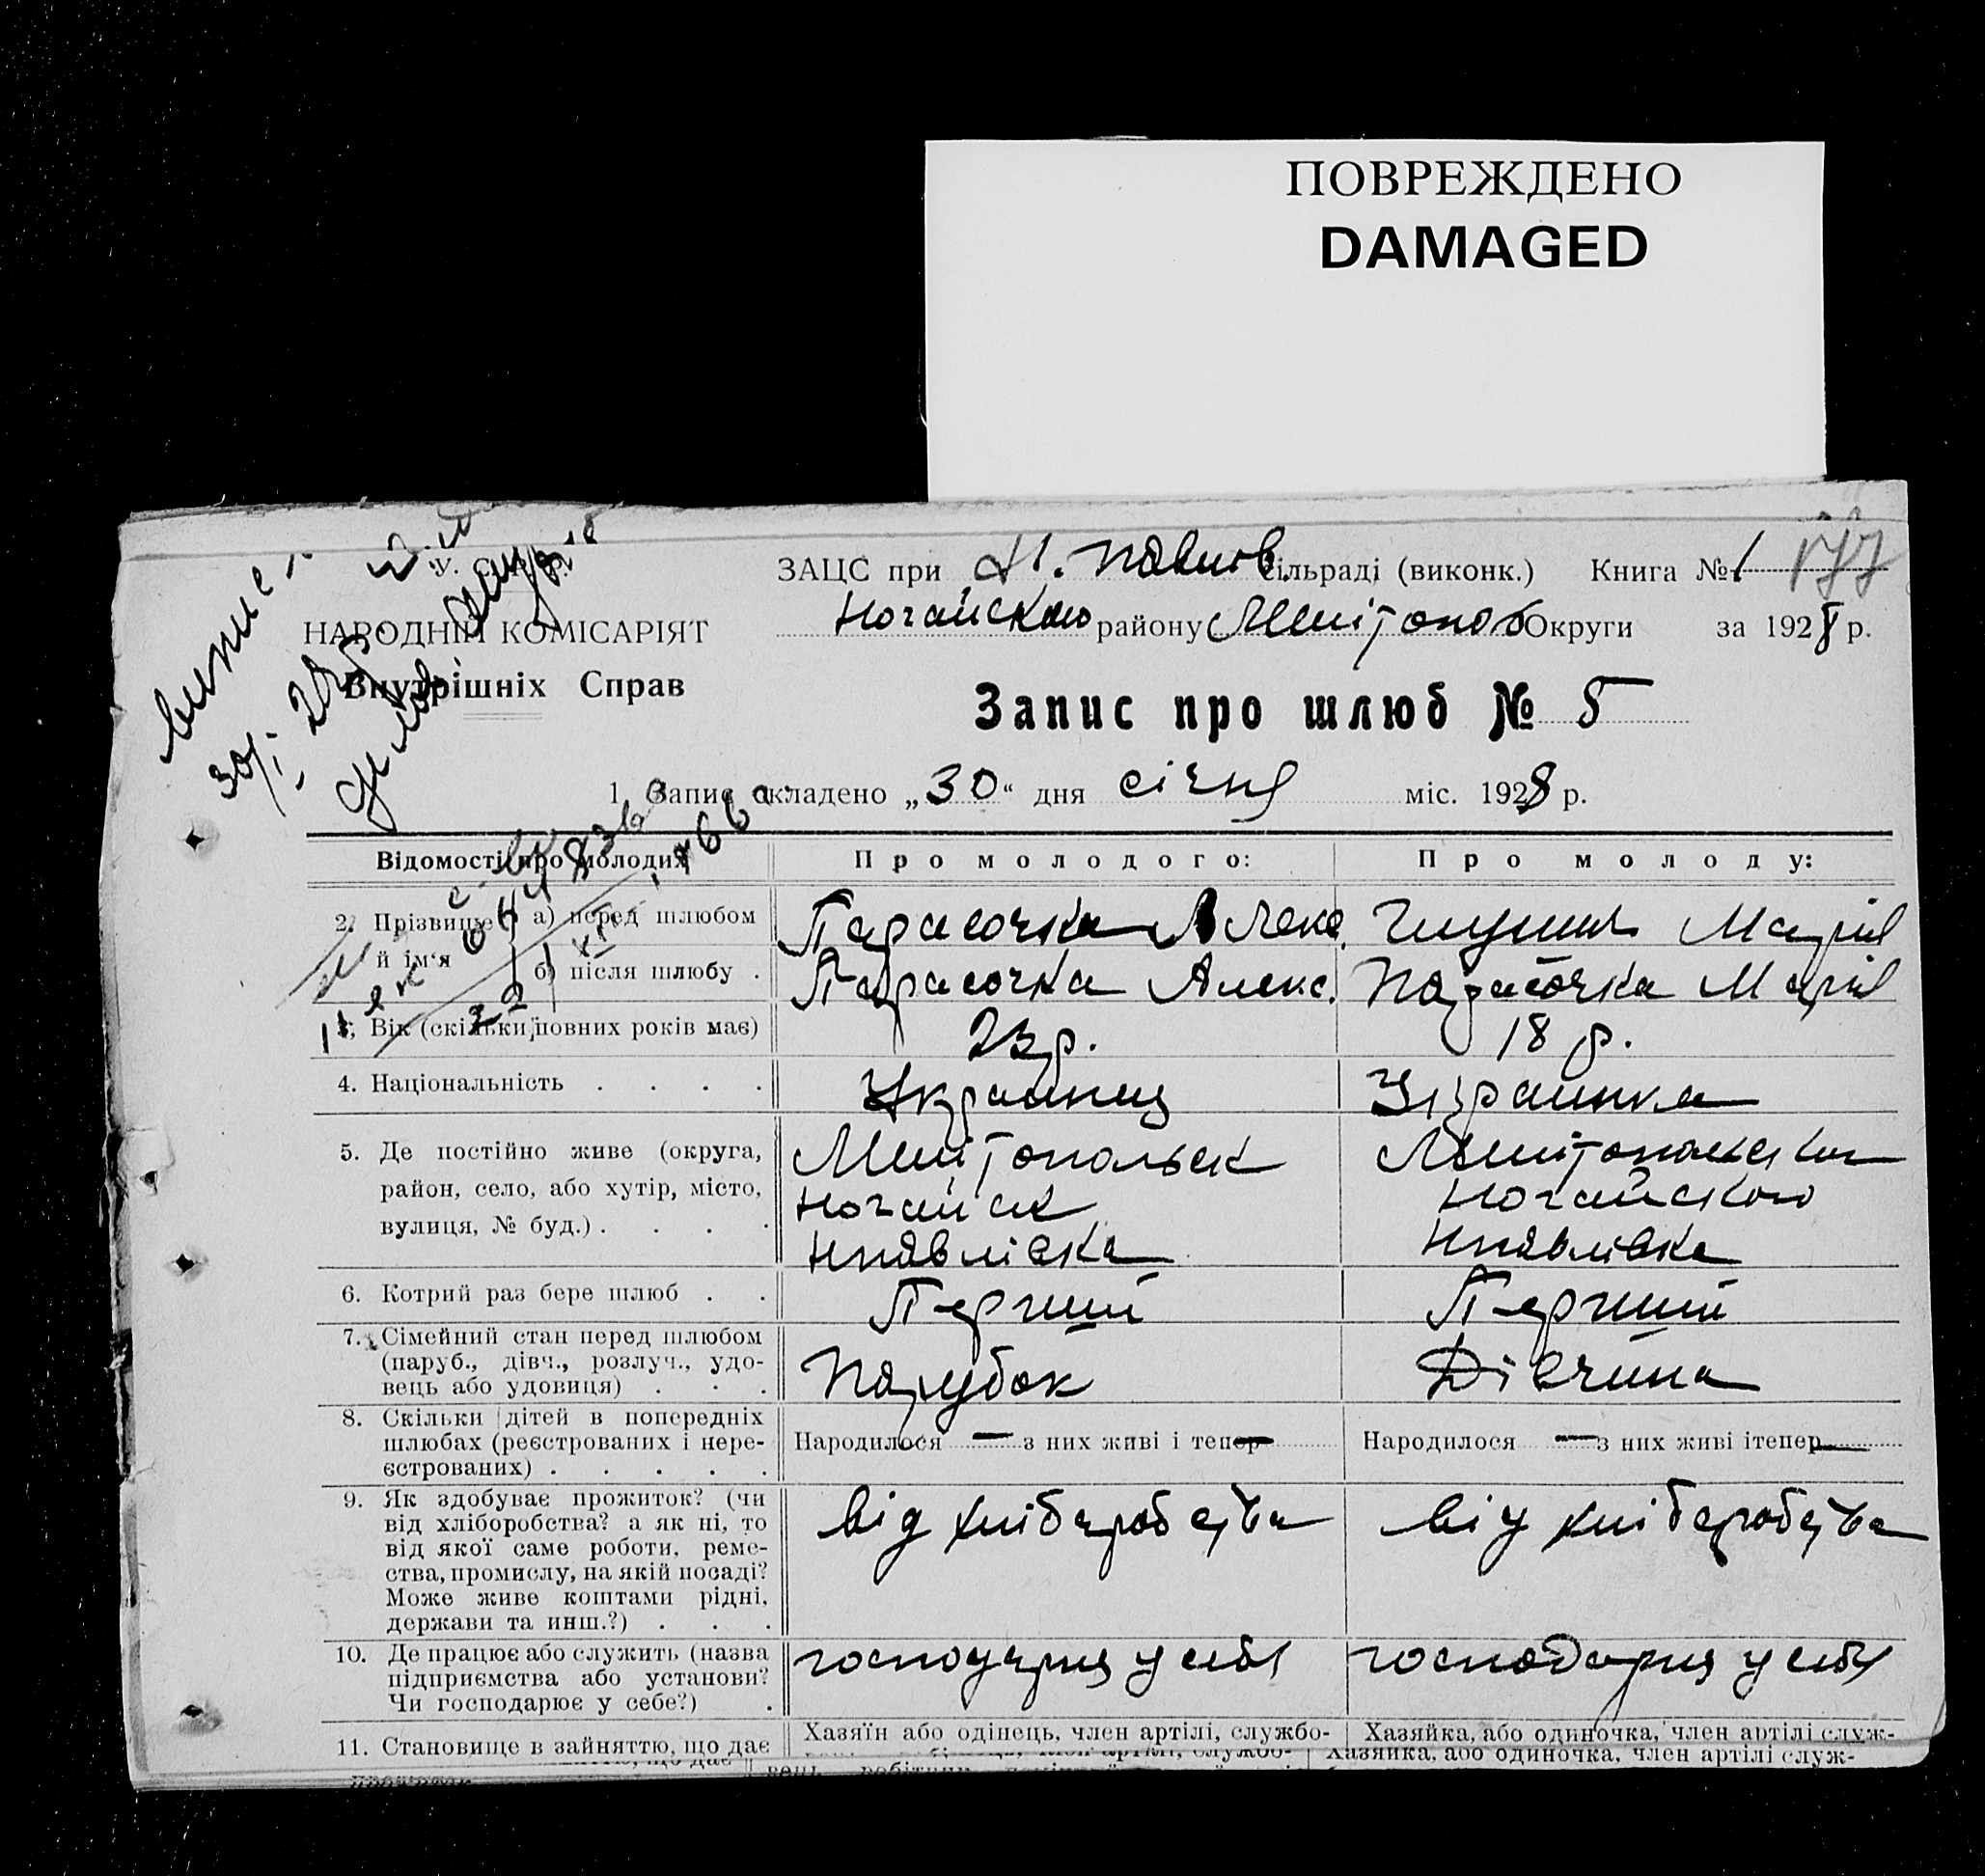 ПОВРЕЖДЕНО
DAMAGED
ЗАЦС при Н. Павлов. сільраді (виконк.) Книга № 1 177
НАРОДНІЙ КОМІСАРІЯТ
Ногайського району Мелітопол Округи за 1928 р.
Внутрішніх Справ
Запис про шлюб № 5
1. Запис складено „30“ дня січня міс. 1928 р.
Відомості про молодих
Про молодого:
Про молоду:
2. Прізвище й ім'я
а) перед шлюбом
Парасочка Алекс.
Марія
б) після шлюбу .
Парасочка Алекс.
Парасочка Марія
3. Вік (скільки повних років має)
23 р.
18 р.
4. Національність . . . .
Украинец
Украинка
5. Де постійно живе (округа,
район, село, або хутір, місто,
вулиця, № буд.) . . . .
Мелітопольск
Ногайск
Нпавлівка
Мелітопольська
Ногайського
Нпавлівка
6. Котрий раз бере шлюб . .
Перший
Перший
7. Сімейний стан перед шлюбом
(паруб., дівч., розлуч., удо-
вець або удовиця) . . .
Парубок
Дівчина
8. Скільки дітей в попередніх
шлюбах (реєстрованих і нере-
єстрованих) . . . . .
Народилося — з них живі і тепер —
Народилося — з них живі ітепер —
9. Як здобуває прожиток? (чи
від хліборобства? а як ні, то
від якої саме роботи, реме-
ства, промислу, на якій посаді?
Може живе коштами рідні,
держави та инш.?) . . .
від хліборобства
від хліборобства
10. Де працює або служить (назва
підприємства або установи?
Чи господарює у себе?) .
господарця у себе
господарця у себе
11. Становище в зайняттю, що дає
Хазяїн або одінець, член артілі, службо-
Хазяйка, або одиночка, член артілі служ-
Хазяйка, або одиночка, член артілі служ-